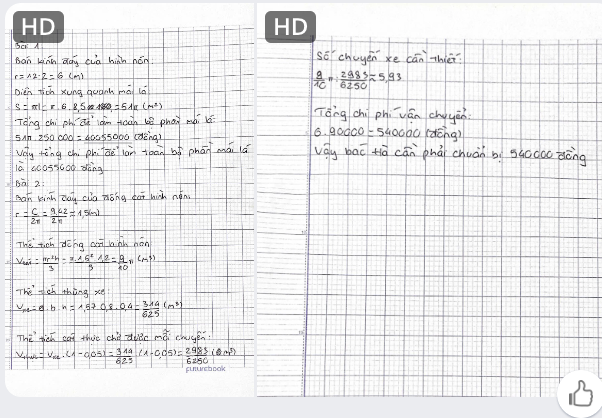 HD
Bài 1
Bán kính đáy của hình nón.
r=12:2=6 (m)
Diện tích xung quanh mái lá
S=πrl=π.6.8,5=51π (m²)
Tổng chi phí để làm toàn bộ phần mái lá là:
51π.250 000=40055000 (đồng)
Vậy tổng chi phí để làm toàn bộ phần mái lá
là 40055000 đồng
Bài 2:
Bán kính đáy của đống cát hình nón.
r=C/2π=9,42/2π≈1,5(m)
Thể tích đống cát hình nón
V cát=πr²h/3=π.1,5².1,2/3=9/10π (m³)
Thể tích thùng xe:
V xe=a.b.h=1,57.0,8.0,4=314/625 (m³)
Thể tích cát thực chở được mỗi chuyến:
V thực=V xe.(1-0,05)=314/625.(1-0,05)=2983/6250 (m³)
futurebook
HD
Số chuyến xe cần thiết:
9/10π:2983/6250≈5,93
Tổng chi phí vận chuyển:
6.90000=540000 (đồng)
Vậy bác Hà cần phải chuẩn bị 540000 đồng